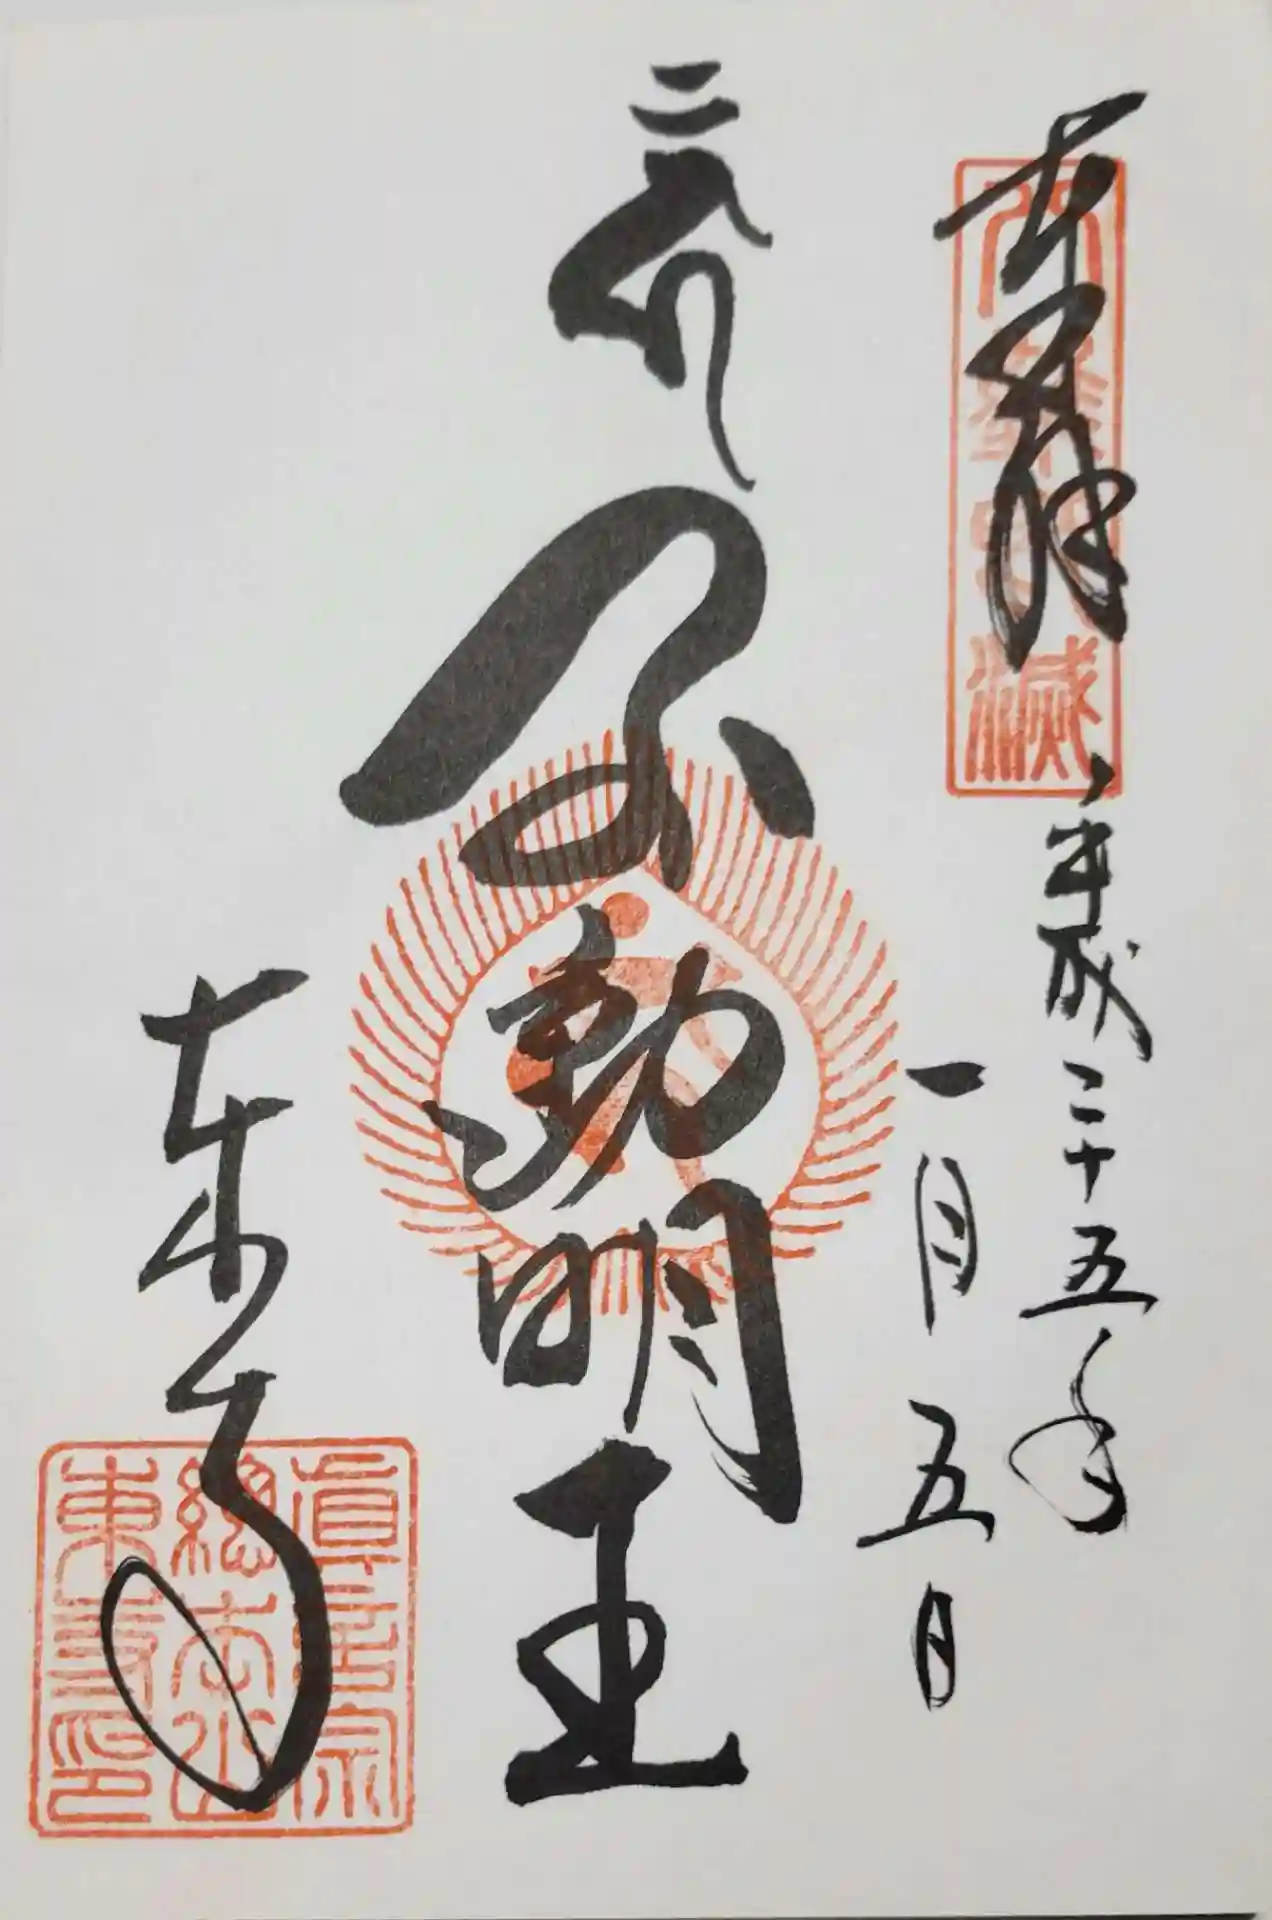 奉拝
平成二十五年
一月五日
不動明王
東寺
真言宗
總本山
東寺印